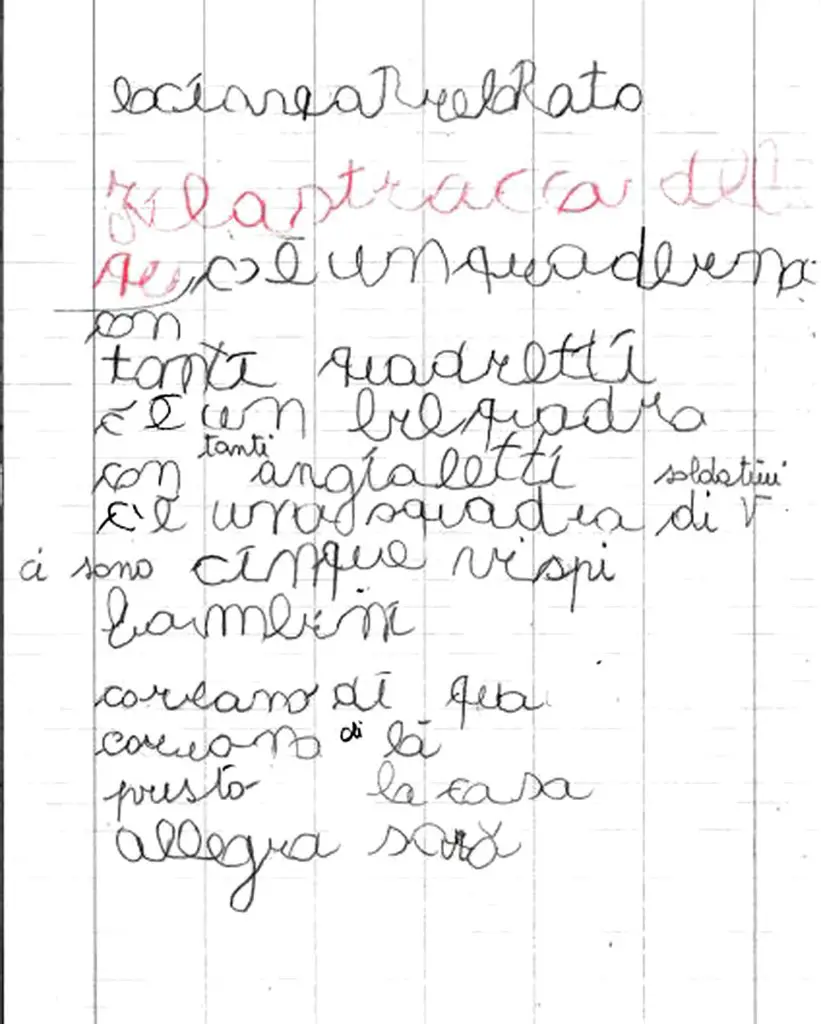 zilastraccia del
qu c'è unquaderno
con
tanti quadretti
c'è un bel quadro
con tanti angialetti
c'è una squadra di soldatini
ci sono cinque vispi
bambini
corrano di qua
corrono di là
presto la casa
allegra sarà